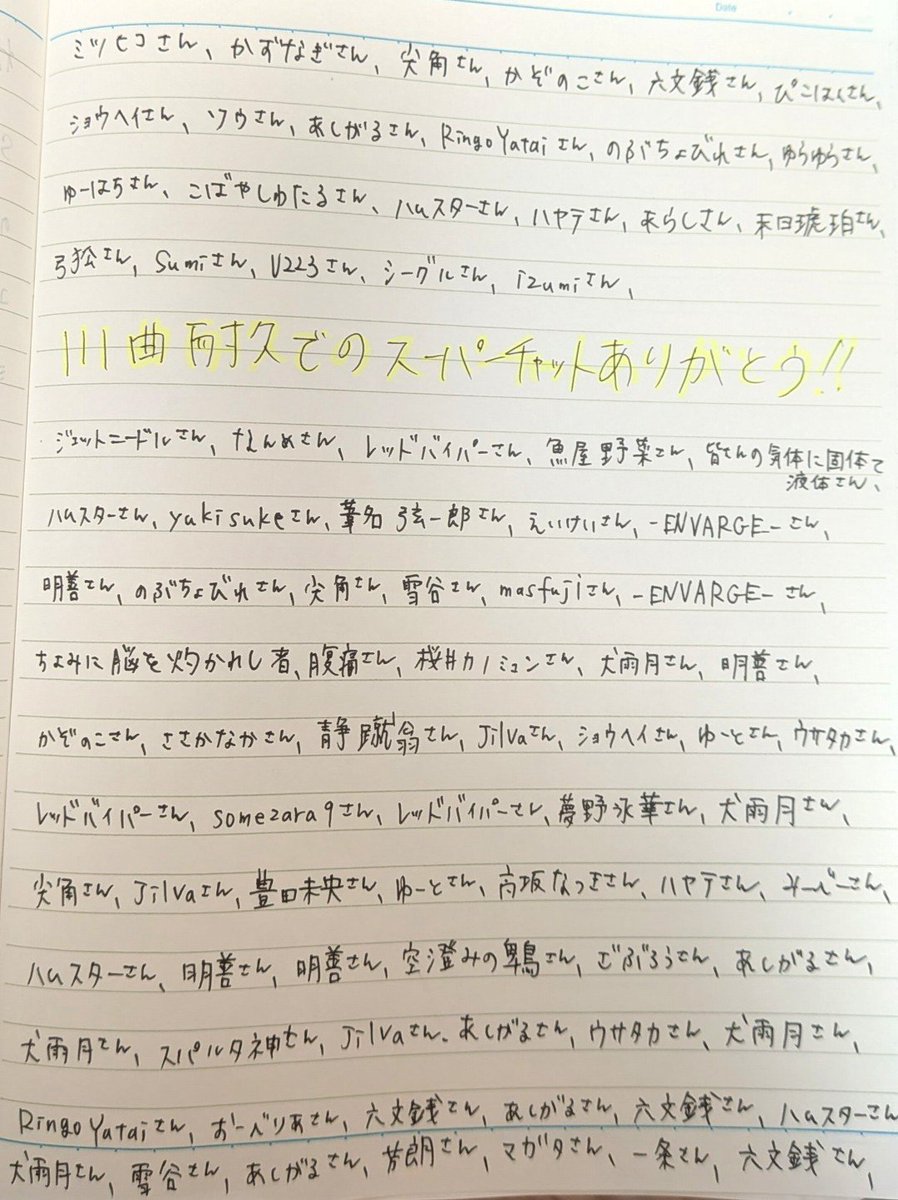 Date
ミツヒコさん、かずなぎさん、尖角さん、かぞのこさん、六文銭さん、ぴこはくさん、
ショウヘイさん、ソウさん、あしがるさん、RingoYataiさん、のぶちょびれさん、ゆらゆらさん、
ゆーはちさん、こばやしわたるさん、ハムスターさん、ハヤテさん、あらしさん、末日琥珀さん、
弓狐さん、Sumiさん、V223さん、シーグルさん、izumiさん、
111曲耐久でのスーパーチャットありがとう!!
ジェットニードルさん、なんめさん、レッドバイパーさん、魚屋野菜さん、皆さんの気体に固体て
液体さん、
ハムスターさん、yukisukeさん、葦名弦一郎さん、えいけいさん、-ENVARGE-さん、
明善さん、のぶちょびれさん、尖角さん、雪谷さん、masfujiさん、-ENVARGE-さん、
ちよみに脳を灼かれし者、腹痛さん、桜井カノミュンさん、犬雨月さん、明善さん、
かぞのこさん、ささかなかさん、静蹴翁さん、Jilvaさん、ショウヘイさん、ゆーとさん、ウサタカさん、
レッドバイパーさん、somezara9さん、レッドバイパーさん、夢野永華さん、犬雨月さん、
尖角さん、Jilvaさん、豊田未央さん、ゆーとさん、高坂なつきさん、ハヤテさん、みーべーさん、
ハムスターさん、明善さん、明善さん、空澄みの鶚さん、ごぶろうさん、あしがるさん、
犬雨月さん、スパルタ神さん、Jilvaさん、あしがるさん、ウサタカさん、犬雨月さん、
RingoYataiさん、おーべりあさん、六文銭さん、あしがるさん、六文銭さん、ハムスターさん
犬雨月さん、雪谷さん、あしがるさん、芳朗さん、マガタさん、一条さん、六文銭さん、